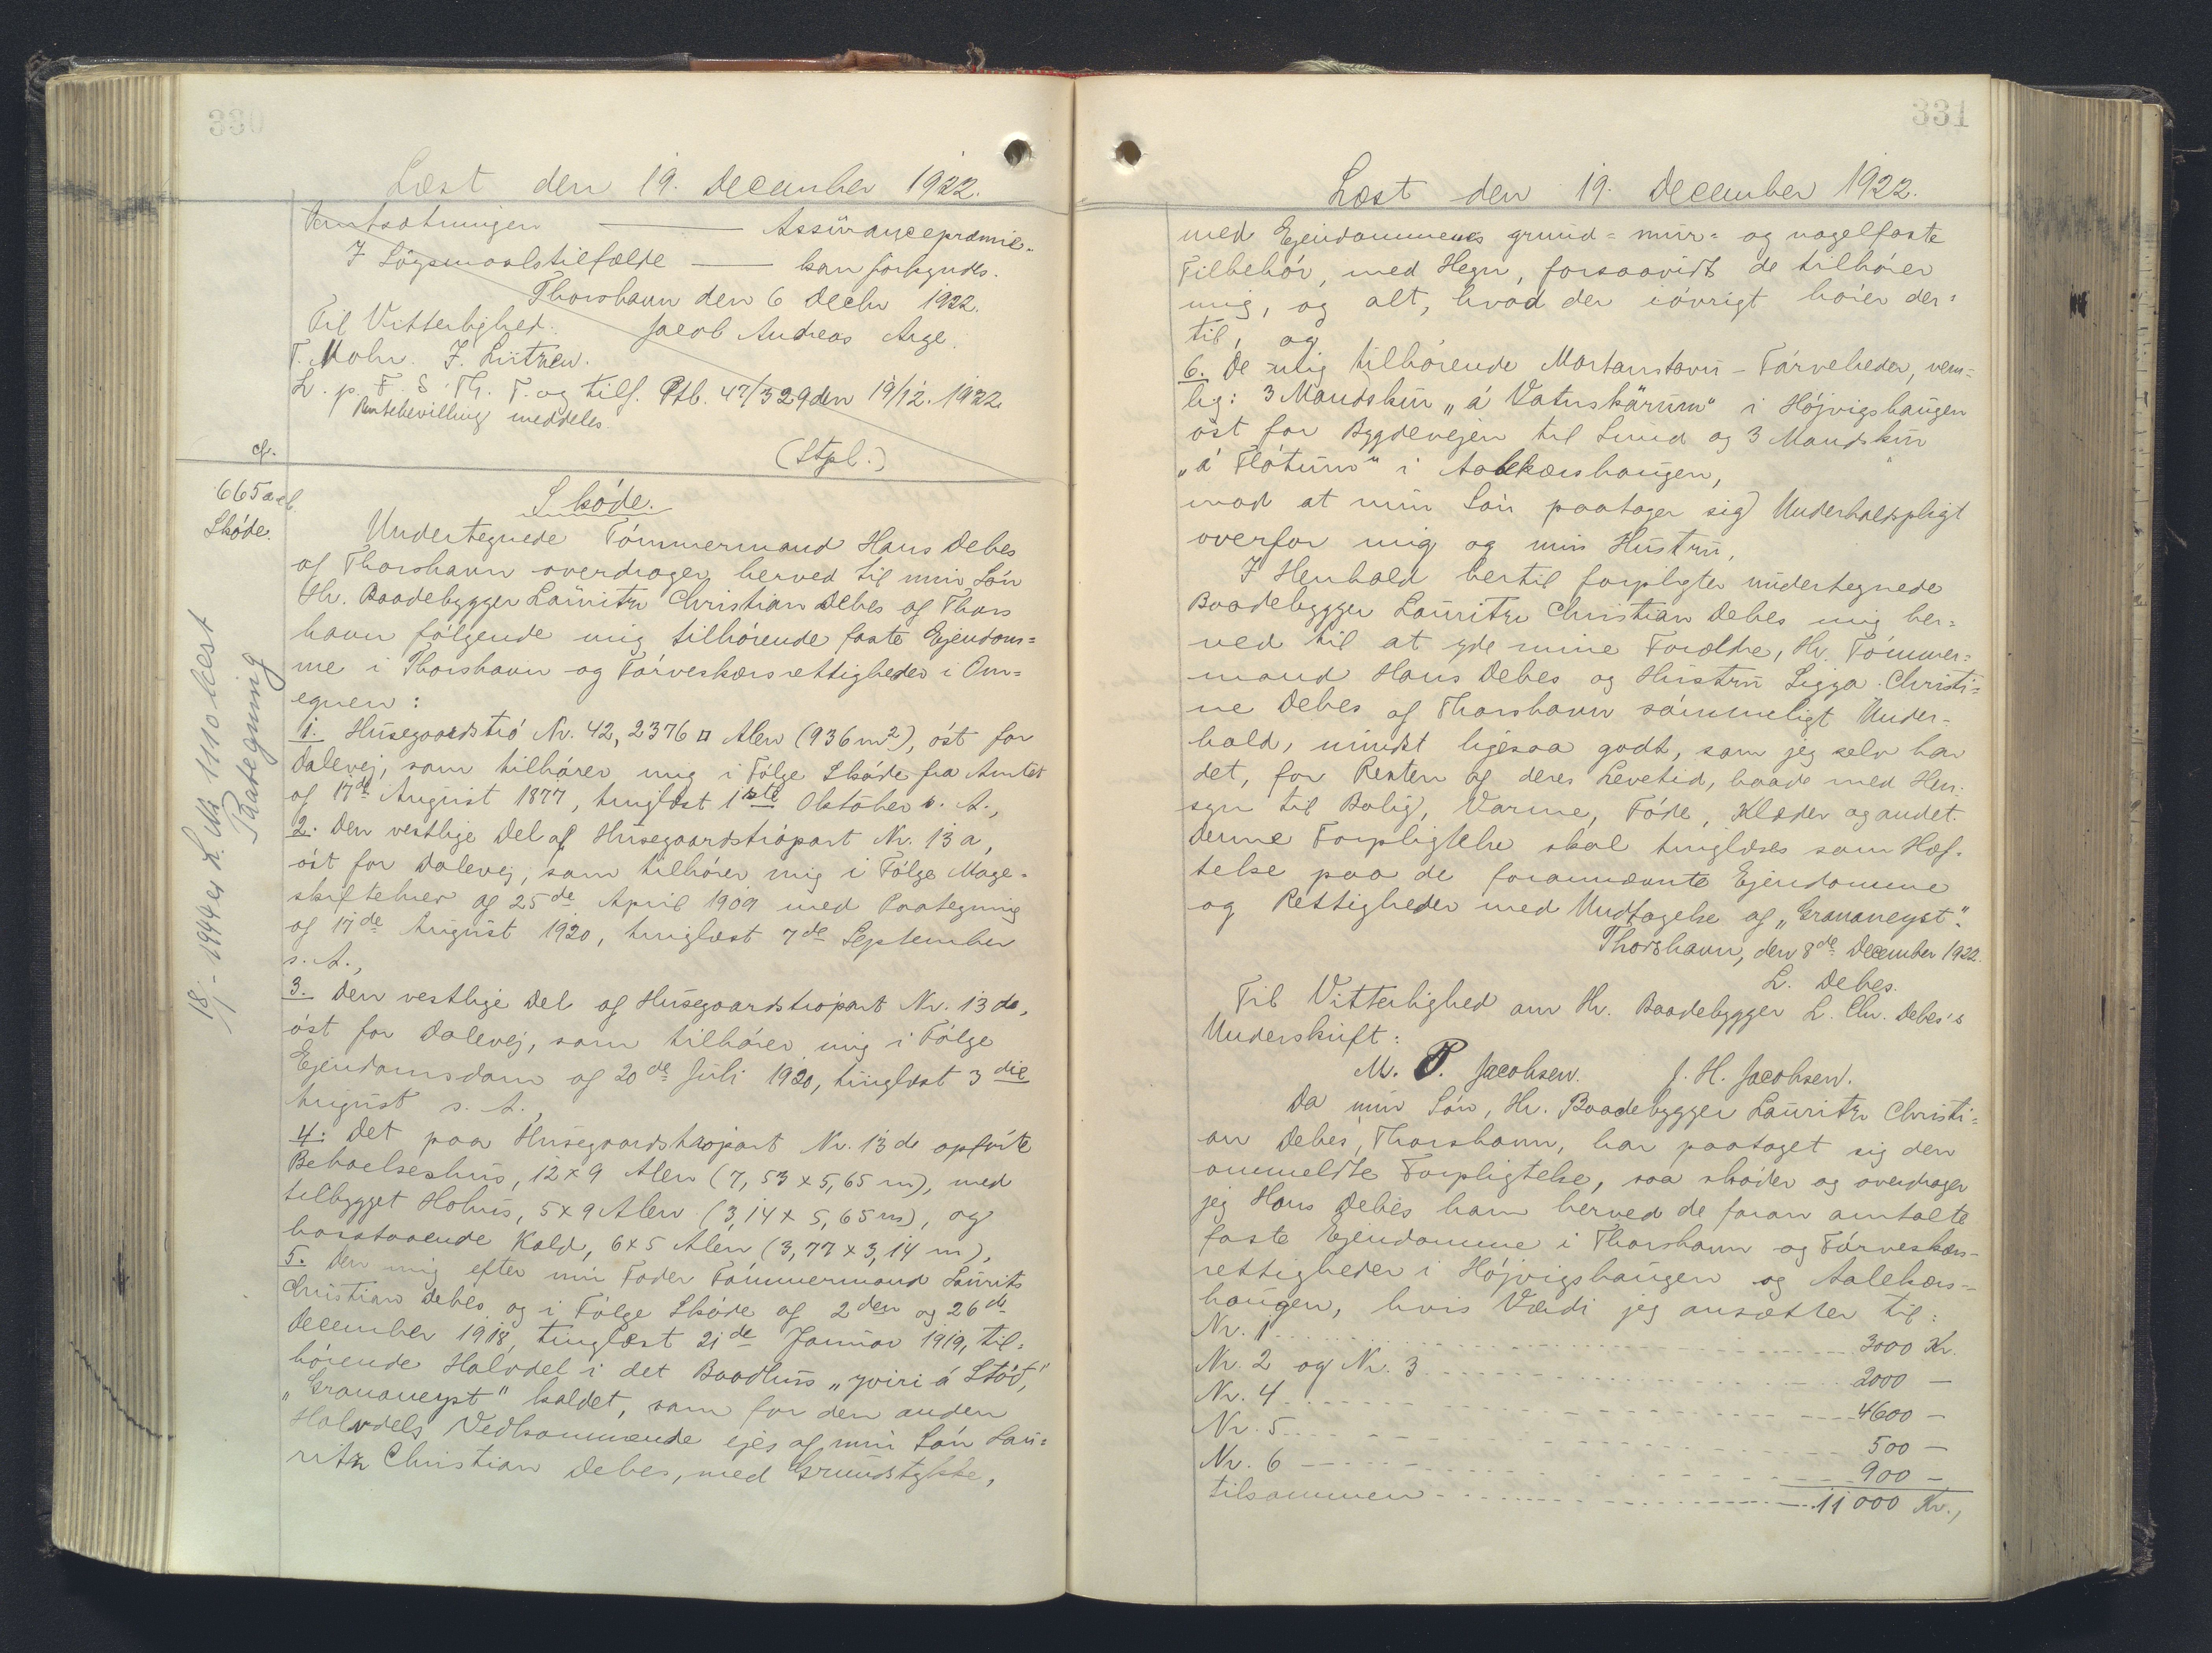 330
Læst den 19. December 1922.
Assüranceprœmie.
I Lögsmaalstilfælde — kan forkyndes.
Thorshavn den 6 Decbr 1922.
Til Vitterlighed. Jacob Andreas Arge.
T. Mohr. J. Lützen.
L. p. F. S. Th. F. og tilf. Ptb. 47/329 den 19/12. 1922.
meddeles
(Stpl.)
cf.
665 a
Skóde.
Skóde.
Undertegnede Tómmermand Hans Debes
af Thorshavn overdrager herved til min Són
Hr. Baadebygger Lauritz Christian Debes af Thors
havn fólgende mig tilhórende faste Ejendom=
me i Thorshavn og Tórveskærsrettigheder i Om=
egnen:
1. Husegaardstró Nr. 42, 2376 □ Alen (936 m²), óst for
Dalevej, som tilhórer mig i Fólge Skóde fra Amtet
af 17de August 1877, tinglæst 1ste Oktober s. A.,
2. Den vestlige Del af Husegaardstrópart Nr. 13 a,
óst for Dalevej, som tilhórer mig i Fólge Mage=
skiftebrev af 25de April 1909 med Paategning
af 17de August 1920, tinglæst 7de September
s. A.,
3. Den vestlige Del af Husegaardstrópart Nr. 13 da,
óst for Dalevej, som tilhórer mig i Fólge
Ejendomsdom af 20de Juli 1920, tinglæst 3die
August s. A.,
4. Det paa Husegaardstrópart Nr. 13 d opfórte
Beboelseshus, 12 x 9 Alen (7,53 x 5,65 m), med
tilbygget Hohus, 5 x 9 Alen (3,14 x 5,65 m), og
hosstaaende Kald, 6 x 5 Alen (3,77 x 3,14 m),
5. Den mig efter min Fader Tómmermand Laurits
Christian Debes og i Fólge Skóde af 2den og 26de
December 1918, tinglæst 21de Januar 1919, til=
hórende Halvdel i det Baadhus „yviri á Stód",
„Grananeyst" kaldet, som for den anden
Halvdels Vedkommende ejes af min Són Lau=
ritz Christian Debes, med Grundstykke,
18/1 - 1944 er L. № 1110 læst
Paategning
331
Læst den 19. December 1922.
med Ejendommenes grund= mur= og nagelfaste
Tilbehór, med Hegn, forsaavidt de tilhórer
mig, og alt, hvad der ióvrigt hórer der=
til, og
6. De mig tilhórende Mortanstovu - Tórveheder, nem=
lig: 3 Mandskur „á Vatnskärum" i Hójvigshaugen
óst for Bygdevejen til Sund og 3 Mandskur
„á Flótum" i Aalekærshaugen,
mod at min Són paatager sig Underholdspligt
overfor mig og min Hustru,
I Henhold hertil forpligter undertegnede
Baadebygger Lauritz Christian Debes mig her=
ved til at yde mine Forældre, Hr. Tómmer=
mand Hans Debes og Hustru Sigga Christi=
ne Debes af Thorshavn sómmeligt Under=
hold, mindst ligesaa godt, som jeg selv har
det, for Resten af deres Levetid, baade med Hen=
syn til Bolig, Varme, Fóde, Klæder og andet.
Denne Forpligtelse skal tinglæses som Hæf=
telse paa de forannævnte Ejendomme
og Rettigheder med Undtagelse af „Grananeyst".
Thorshavn, den 8de December 1922.
L. Debes.
Til Vitterlighed om Hr. Baadebygger L. Chr. Debes's
Underskrift:
M. P. Jacobsen. J. H. Jacobsen.
Da min Són, Hr. Baadebygger Lauritz Christi=
an Debes, Thorshavn, har paataget sig den
ommeldte Forpligtelse, saa skóder og overdrager
jeg Hans Debes ham herved de foran omtalte
faste Ejendomme i Thorshavn og Tórveskærs=
rettigheder i Hójvigshaugen og Aalekærs=
haugen, hvis Værdi jeg ansætter til:
Nr. 1 3000 Kr.
Nr. 2 og Nr. 3 2000 —
Nr. 4 4600 —
Nr. 5 500 —
Nr. 6 900 —
tilsammen 11000 Kr.,